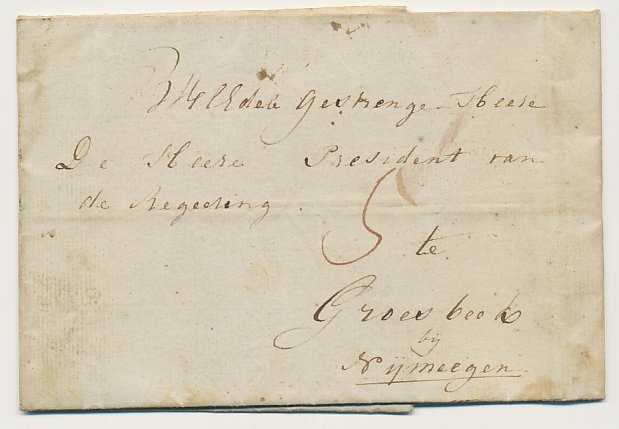 WelEdele Gestrenge Heere
De Heere President van
de Regeering
5
te
Groesbeek
bij
Nijmeegen